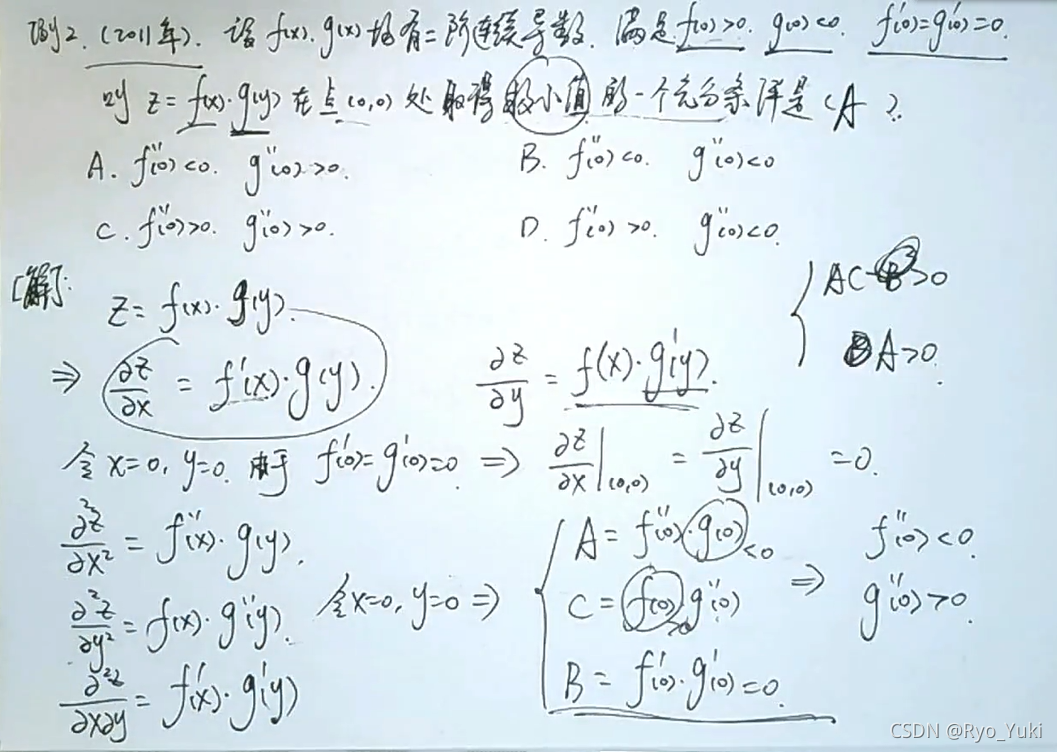 例2.(2011年). 设 f(x). g(x) 均有二阶连续导数. 满足 f(0)>0. g(0)<0. f'(0)=g'(0)=0.
则 z=f(x)·g(y) 在点(0,0) 处取得极小值的一个充分条件是(A).
A. f''(0)<0. g''(0)>0. B. f''(0)<0. g''(0)<0
C. f''(0)>0. g''(0)>0. D. f''(0)>0. g''(0)<0.
[解]: z=f(x)·g(y).
AC-B²>0
A>0.
⇒ ∂z/∂x = f'(x)·g(y). ∂z/∂y = f(x)·g'(y).
令 x=0, y=0. 由于 f'(0)=g'(0)=0 ⇒ ∂z/∂x|(0,0) = ∂z/∂y|(0,0) =0.
∂²z/∂x² = f''(x)·g(y).
∂²z/∂y² = f(x)·g''(y).
∂²z/∂x∂y = f'(x)·g'(y)
令x=0, y=0 ⇒
A = f''(0)·g(0) <0
C = f(0)·g''(0) >0
B = f'(0)·g'(0)=0.
⇒ f''(0)<0.
g''(0)>0.
CSDN @Ryo_Yuki